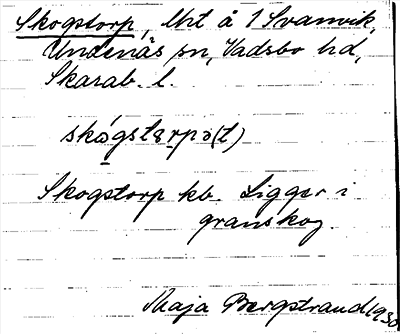 Skogstorp, lht å 1 Svanvik,
Undenäs sn, Vadsbo hd,
Skarab. l.
skógstærpə(t)
Skogstorp kb. Ligger i
granskog.
Maja Bergstrand 1930